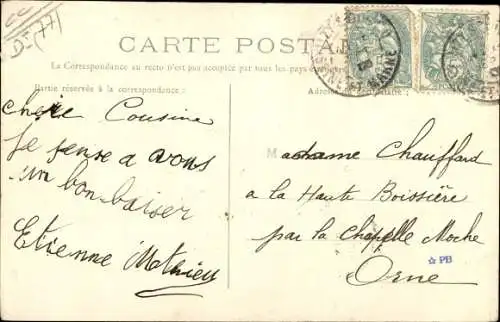 Dt (77)
CARTE POSTA
La Correspondance au recto n'est pas acceptée par tous les pays
Partie réservée à la correspondance :
Adresse
chere Cousine
Je pense a vous
un bon baiser
Etienne Mathieu
Madame Chauffard
a la Haute Boissière
par la Chapelle Moche
Orne
☆ PB